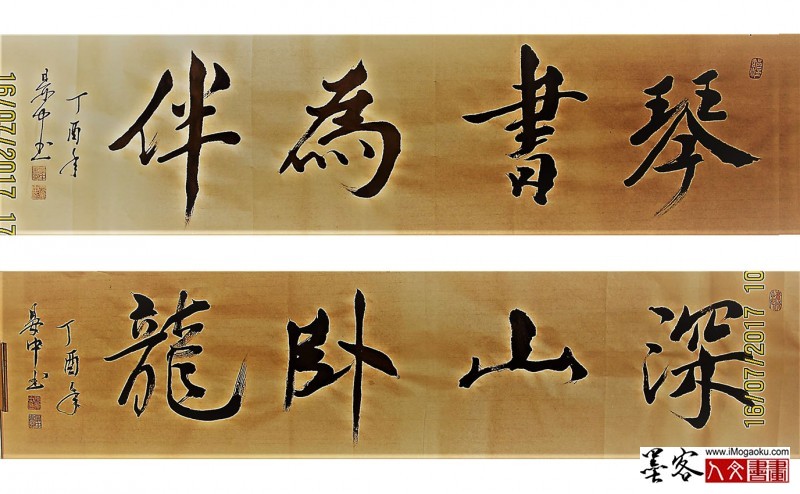 琴書為伴
丁酉年
晏中书
16/07/2017 17
深山卧龍
丁酉年
晏中书
16/07/2017 10
墨客
www.iMogaoku.com
人文書畫